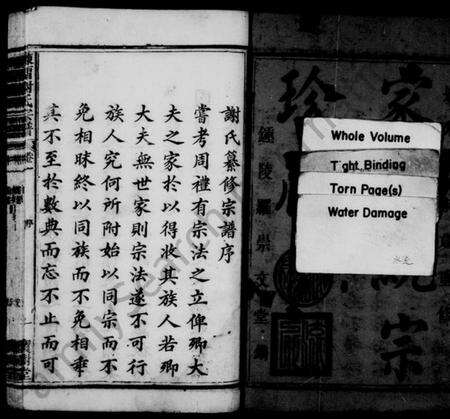 謝氏纂修宗譜序
嘗考周禮有宗法之立俾卿大
夫之家於以得收其族人若卿
大夫無世家則宗法遂不可行
族人究何所附始以同宗而不
免相昧終以同族而不免相乖
其不至於數典而忘不止而可
Whole Volume
Tight Binding
Torn Page(s)
Water Damage
家 宗
珍
鍾陵羅崇文堂